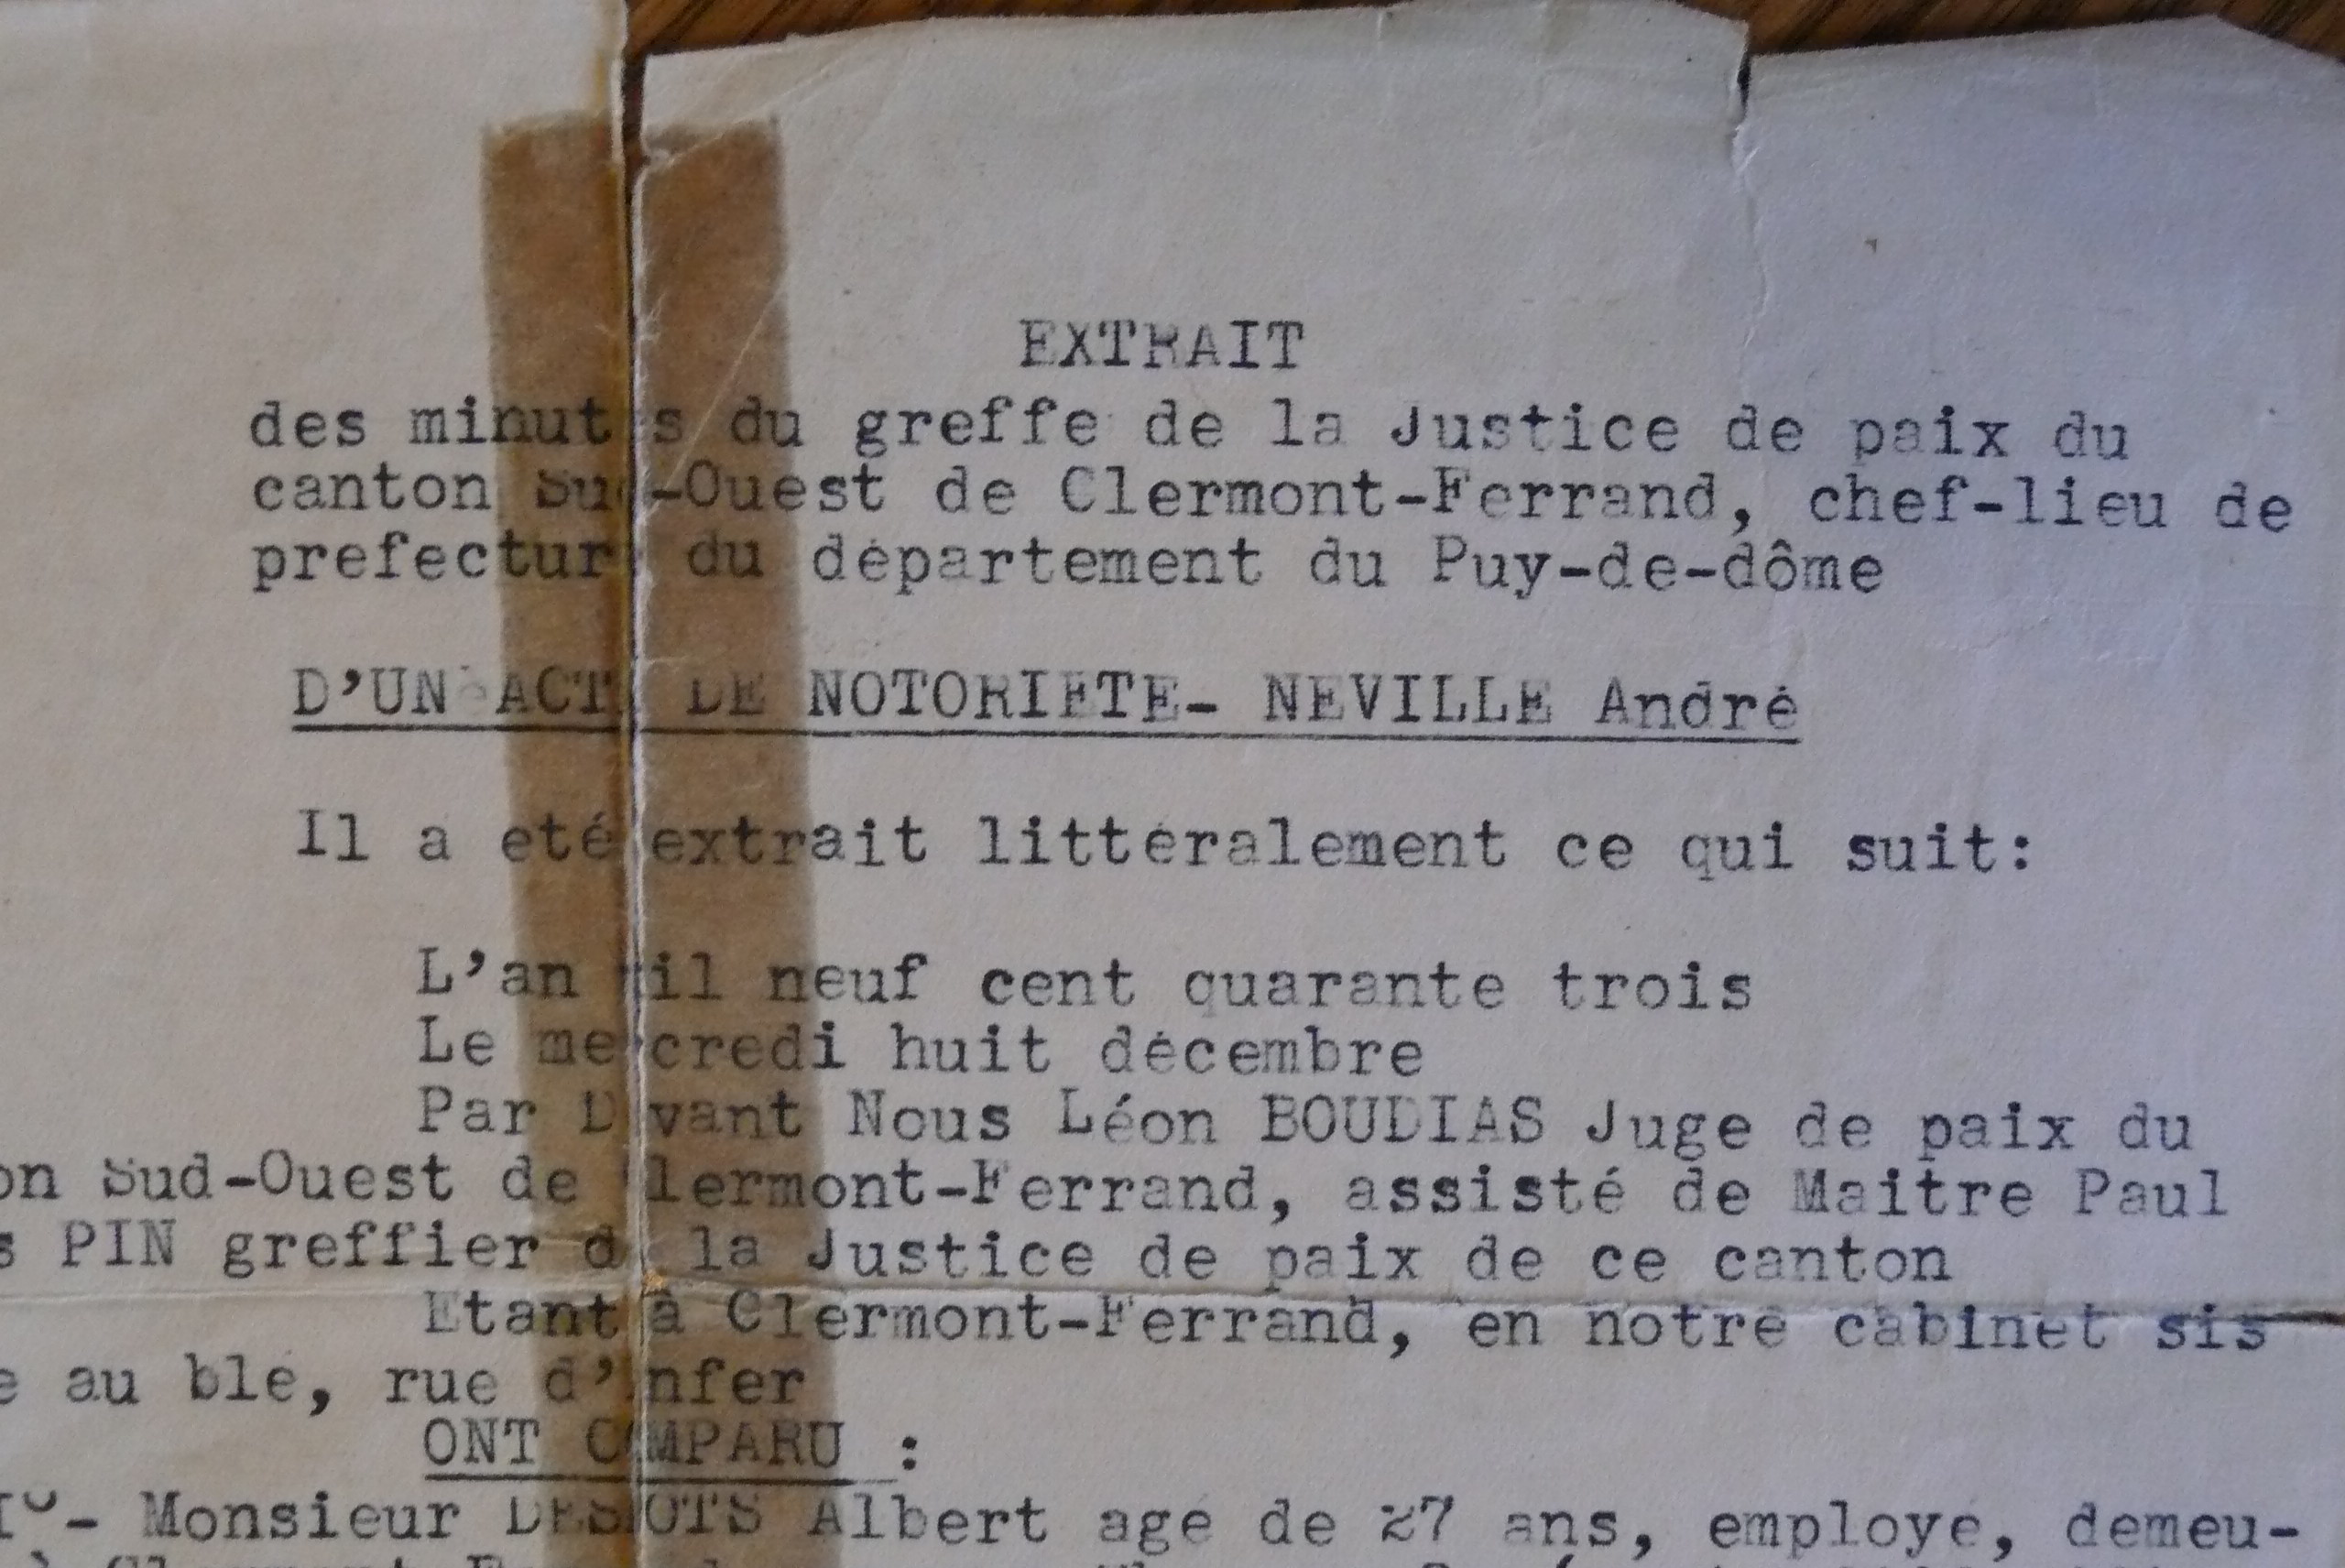 EXTRAIT
des minutes du greffe de la Justice de paix du
canton Sud-Ouest de Clermont-Ferrand, chef-lieu de
prefecture du département du Puy-de-dôme
D'UN ACTE DE NOTORIETE- NEVILLE André
Il a eté extrait littéralement ce qui suit:
L'an mil neuf cent quarante trois
Le mercredi huit décembre
Par Devant Nous Léon BOUDIAS Juge de paix du
on Sud-Ouest de Clermont-Ferrand, assisté de Maitre Paul
s PIN greffier de la Justice de paix de ce canton
Etant à Clermont-Ferrand, en notre cabinet sis
e au blé, rue d'Enfer
ONT COMPARU :
I°- Monsieur Albert agé de 27 ans, employé, demeu-